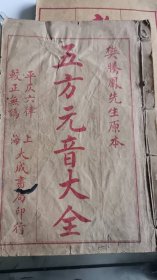 樊騰鳳先生原本
五方元音大全
平仄六律
較正無譌
上海大成書局印行